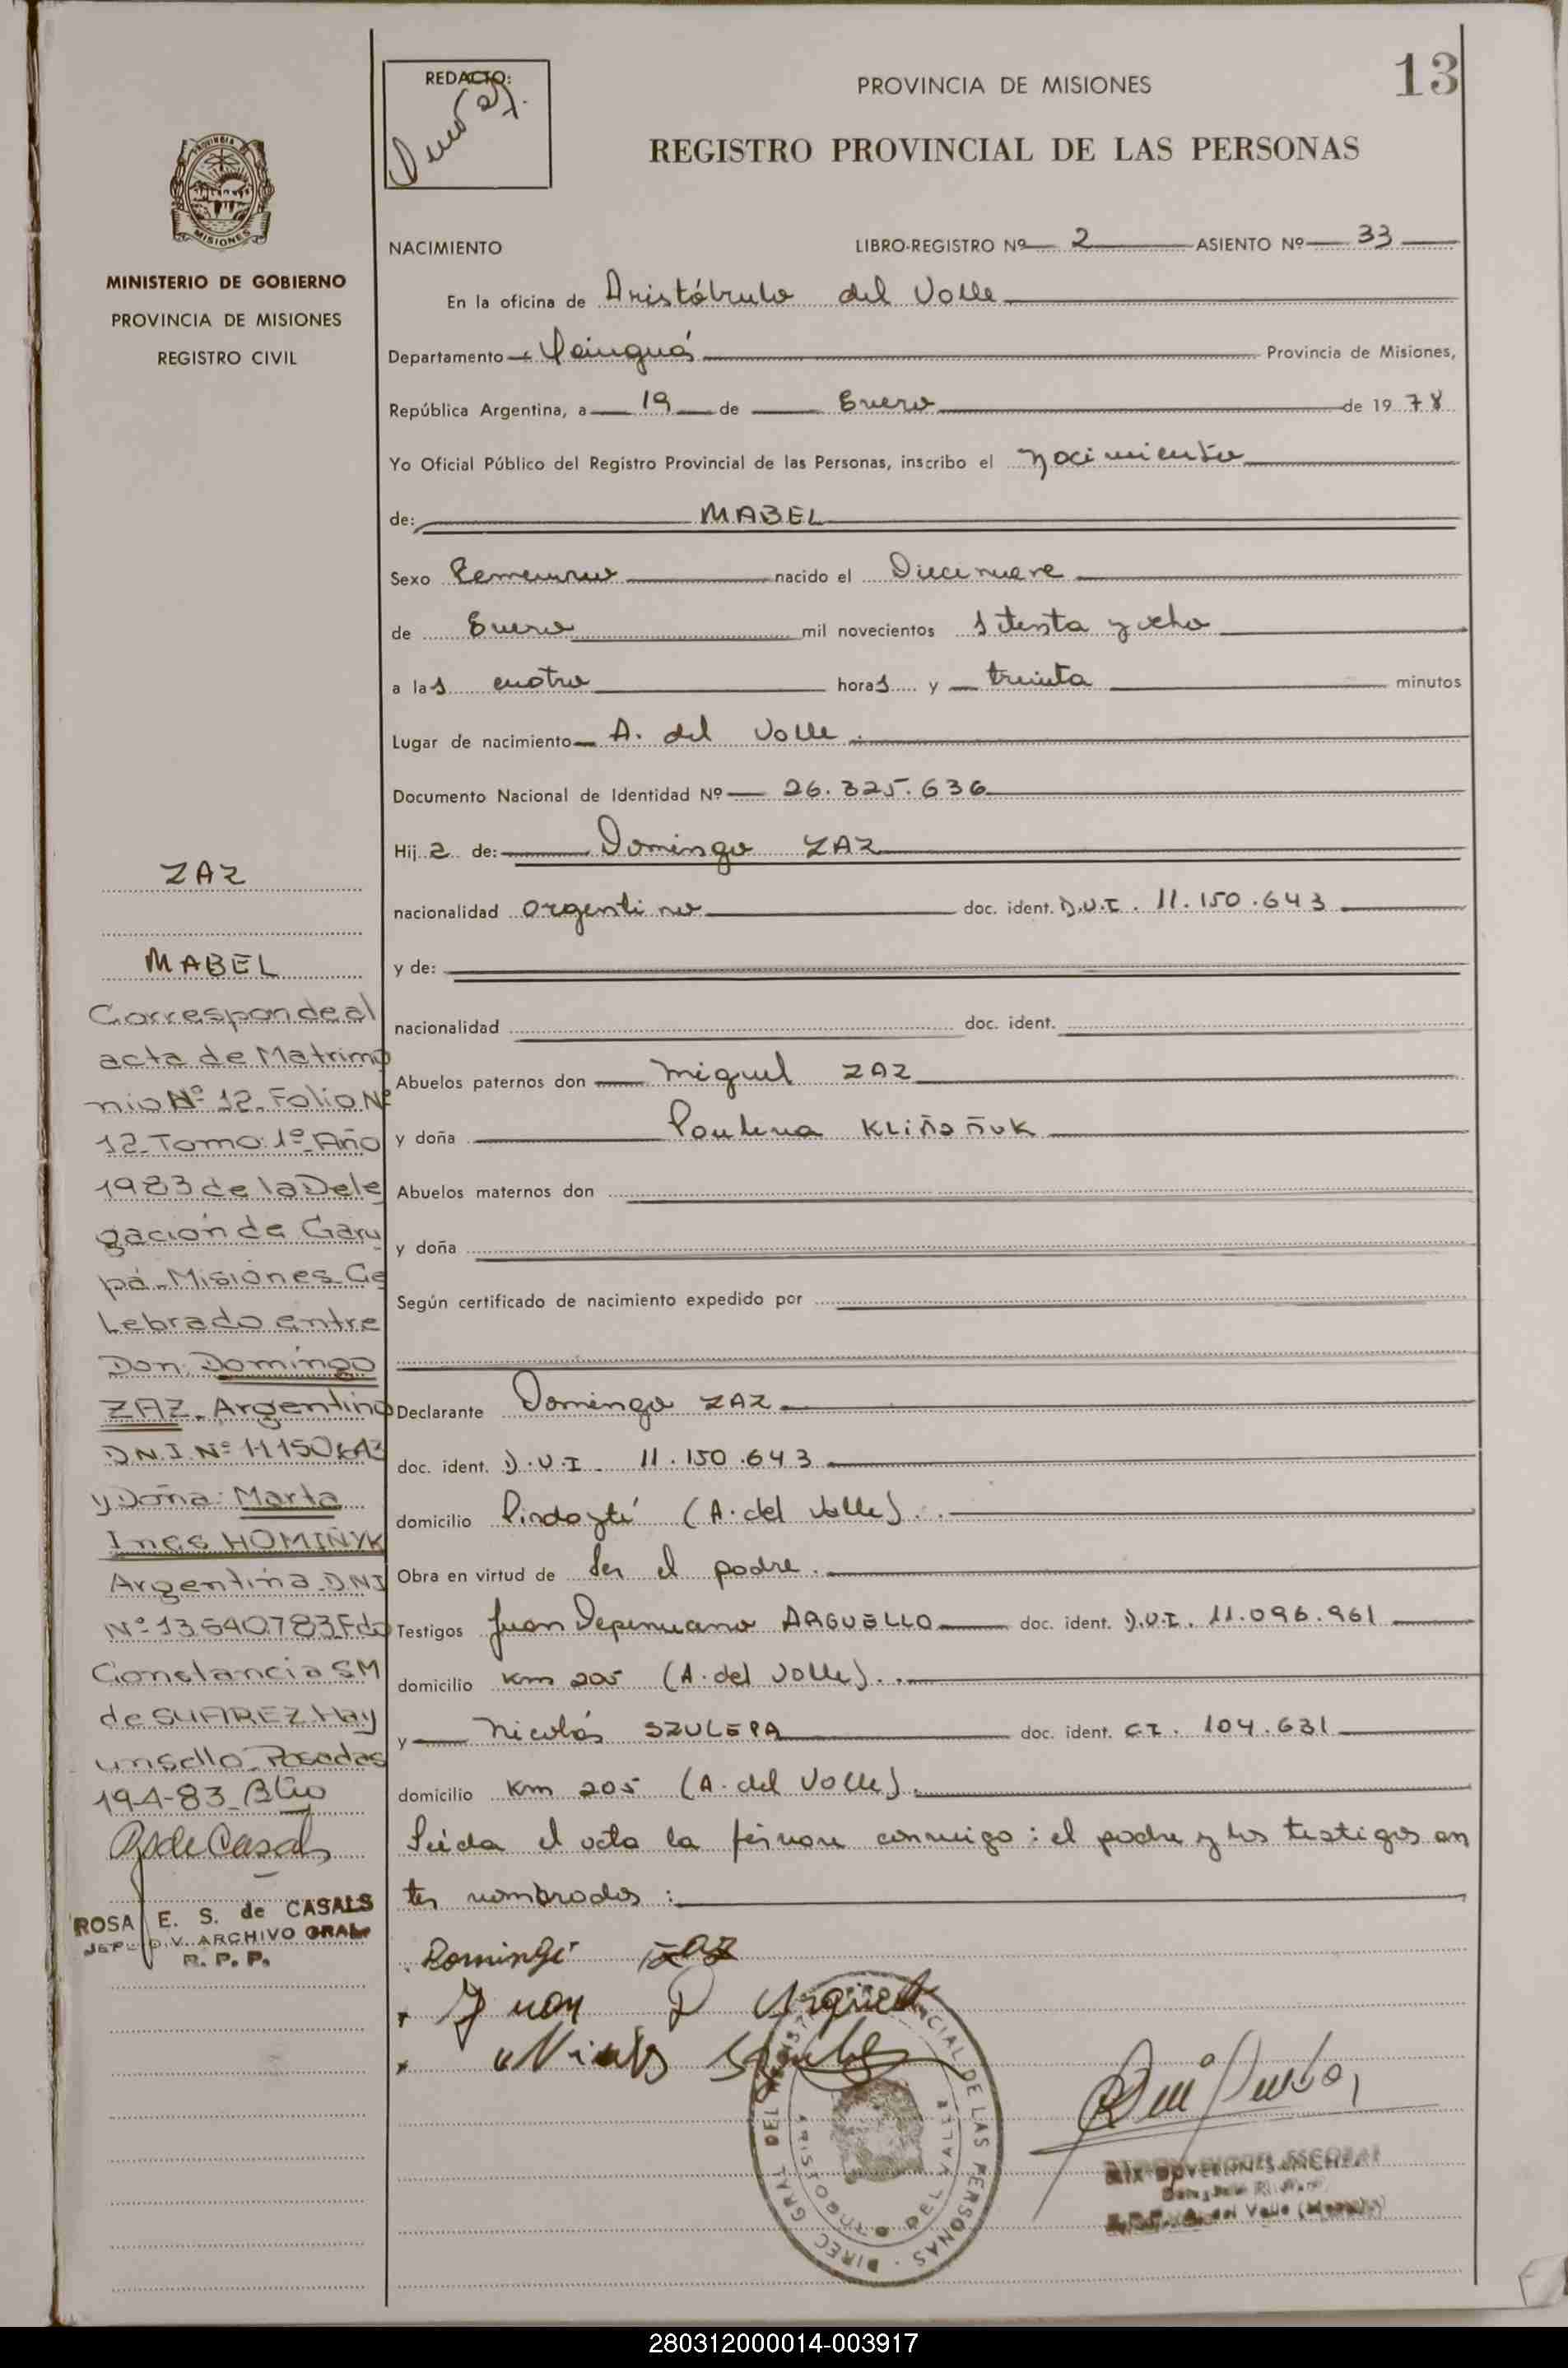 REDACTO:
PROVINCIA DE MISIONES
13
REGISTRO PROVINCIAL DE LAS PERSONAS
MISIONES
MINISTERIO DE GOBIERNO
PROVINCIA DE MISIONES
REGISTRO CIVIL
NACIMIENTO LIBRO-REGISTRO Nº 2 ASIENTO Nº 33
En la oficina de Aristóbulo del Valle
Departamento Cainguás Provincia de Misiones,
República Argentina, a 19 de Enero de 1978
Yo Oficial Público del Registro Provincial de las Personas, inscribo el nacimiento
de: MABEL
Sexo Femenino nacido el Diecinueve
de Enero mil novecientos setenta y ocho
a las cuatro horas y treinta minutos
Lugar de nacimiento A. del Valle.
Documento Nacional de Identidad Nº 26.325.636
Hija de: Domingo ZAZ
nacionalidad argentino doc. ident. D.N.I. 11.150.643
y de:
nacionalidad doc. ident.
Abuelos paternos don Miguel ZAZ
y doña Paulina KLIÑAÑUK
Abuelos maternos don
y doña
Según certificado de nacimiento expedido por
Declarante Domingo ZAZ
doc. ident. D.N.I. 11.150.643
domicilio Pindaytí (A. del Valle).
Obra en virtud de ser el padre.
Testigos Juan ARGUELLO doc. ident. D.N.I. 11.096.961
domicilio Km 205 (A. del Valle).
y Nicolás SZULEPA doc. ident. C.I. 104.631
domicilio Km 205 (A. del Valle).
Leída el acta la firman conmigo: el padre y los testigos an
tes nombrados:
Domingo ZAZ
Juan D Arguello
Nicolás
DIREC. GRAL DEL REGISTRO PROVINCIAL DE LAS PERSONAS
ARISTOBULO DEL VALLE
ZAZ
MABEL
Corresponde al
acta de Matrimo
nio Nº 12 Folio Nº
12 Tomo 1º Año
1983 de la Dele
gación de Garu
pá - Misiones Ce
Lebrado entre
Don: Domingo
ZAZ - Argentino
D.N.I. Nº 11150643
y Doña: Marta
Ines HOMIÑYK
Argentina DNI
Nº 13540783 Fdo
Constancia SM
de SUAREZ Hay
un sello - Posadas
19-4-83
ROSA E. S. de CASALS
JEF DIV. ARCHIVO GRAL
R. P. P.
280312000014-003917